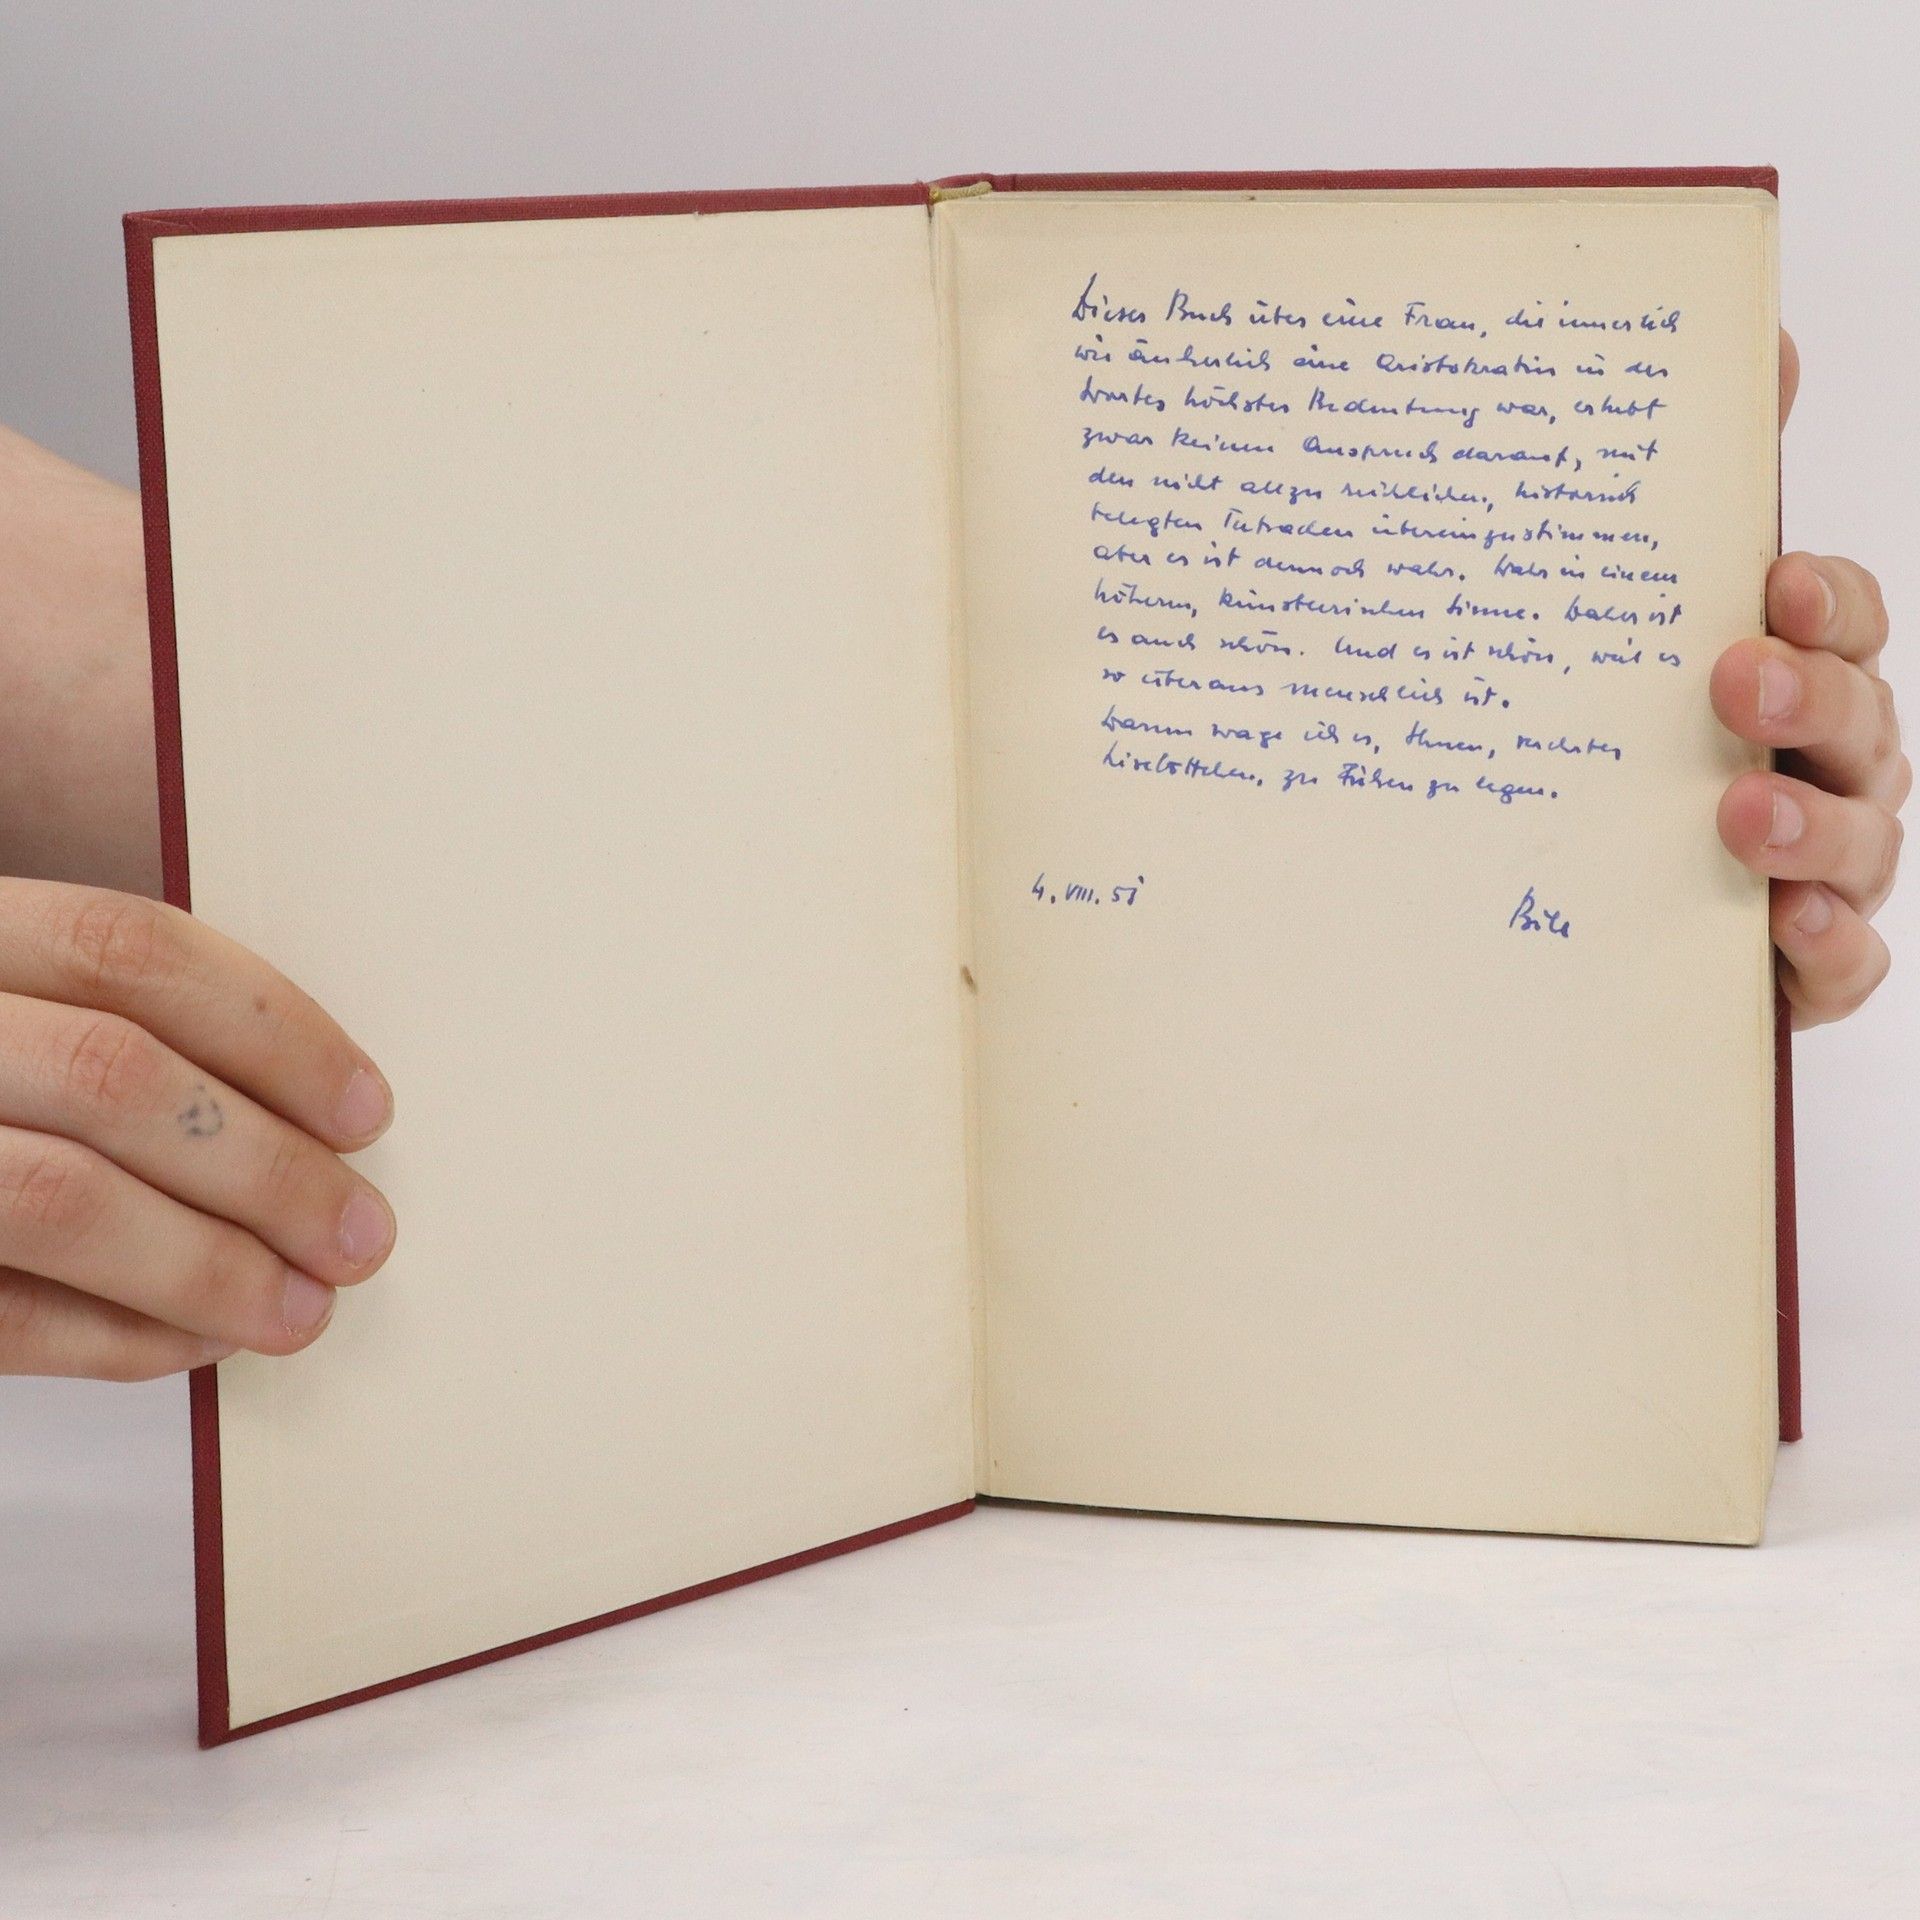 Dieses Buch über eine Frau, die innerlich
wie äußerlich eine Aristokratin in des
Wortes höchster Bedeutung war, erhebt
zwar keinen Anspruch darauf, mit
den nicht allzu reichlichen, historisch
belegten Tatsachen übereinzustimmen,
aber es ist dennoch wahr. Wahr in einem
höhern, künstlerischen Sinne. Daher ist
es auch schön. Und es ist schön, weil es
so überaus menschlich ist.
Darum wage ich es, Ihnen, verehrtes
Liselöttchen, zu Füßen zu legen.
4. VIII. 51